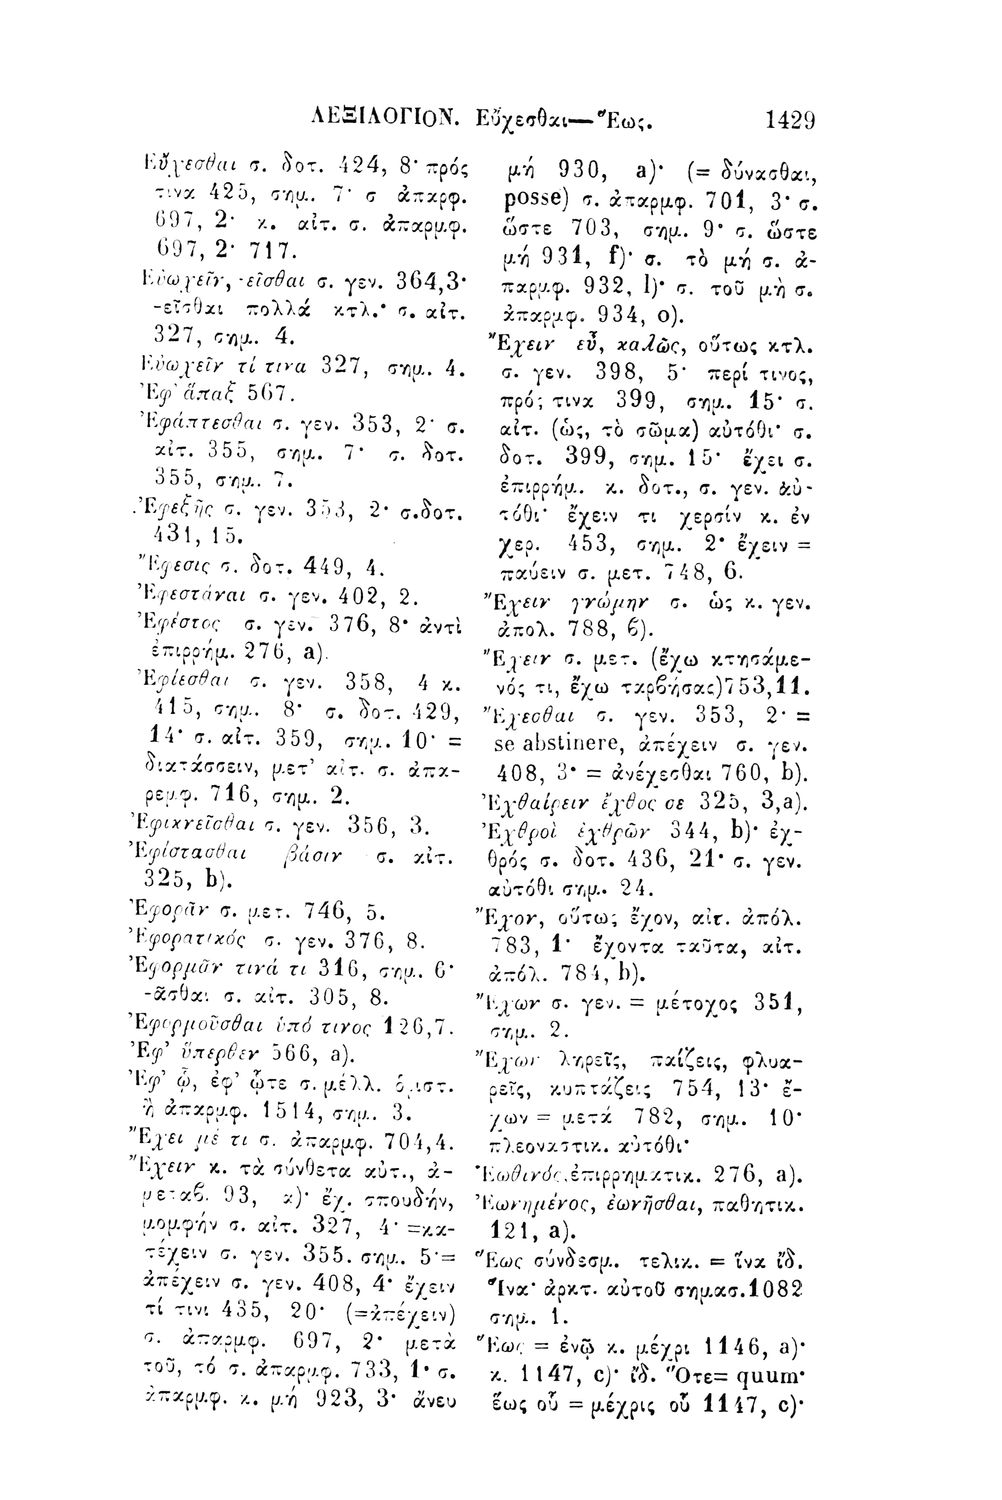 ΛΕΞΙΛΟΓΙΟΝ. Εὔχεσθαι—Ἕως. 1429
Εὔχεσθαι σ. δοτ. 424, 8· πρός
τινα 425, σημ. 7· σ ἀπαρφ.
697, 2· κ. αἰτ. σ. ἀπαρμφ.
697, 2· 717.
Εὐωχεῖν, -εῖσθαι σ. γεν. 364,3·
-εῖσθαι πολλά κτλ.· σ. αἰτ.
327, σημ. 4.
Εὐωχεῖν τί τινα 327, σημ. 4.
Ἐφ' ἅπαξ 567.
Ἐφάπτεσθαι σ. γεν. 353, 2· σ.
αἰτ. 355, σημ. 7· σ. δοτ.
355, σημ. 7.
Ἐφεξῆς σ. γεν. 353, 2· σ.δοτ.
431, 15.
Ἔφεσις σ. δοτ. 449, 4.
Ἐφεστάναι σ. γεν. 402, 2.
Ἐφέστιος σ. γεν. 376, 8· ἀντὶ
ἐπιρρήμ. 276, a).
Ἐφίεσθαι σ. γεν. 358, 4 κ.
415, σημ. 8· σ. δοτ. 429,
14· σ. αἰτ. 359, σημ. 10· =
διατάσσειν, μετ' αἰτ. σ. ἀπα-
ρεμφ. 716, σημ. 2.
Ἐφικνεῖσθαι σ. γεν. 356, 3.
Ἐφίστασθαι βάσιν σ. αἰτ.
325, b).
Ἐφορᾶν σ. μετ. 746, 5.
Ἐφορατικός σ. γεν. 376, 8.
Ἐφορμᾶν τινά τι 316, σημ. 6·
-ᾶσθαι σ. αἰτ. 305, 8.
Ἐφορμοῦσθαι ὑπό τινος 126,7.
Ἐφ' ὕπερθεν 566, a).
Ἐφ' ᾧ, ἐφ' ᾧτε σ. μέλλ. ὁριστ.
ἢ ἀπαρμφ. 1514, σημ. 3.
Ἔχει μέ τι σ. ἀπαρμφ. 704,4.
Ἔχειν κ. τὰ σύνθετα αὐτ., ἀ-
μεταβ. 93, α)· ἔχ. σπουδήν,
μομφήν σ. αἰτ. 327, 4· =κα-
τέχειν σ. γεν. 355. σημ. 5·=
ἀπέχειν σ. γεν. 408, 4· ἔχειν
τί τινι 435, 20· (=ἀπέχειν)
σ. ἀπαρμφ. 697, 2· μετὰ
τοῦ, τό σ. ἀπαρμφ. 733, 1· σ.
ἀπαρμφ. κ. μή 923, 3· ἄνευ
μή 930, a)· (= δύνασθαι,
posse) σ. ἀπαρμφ. 701, 3· σ.
ὥστε 703, σημ. 9· σ. ὥστε
μή 931, f)· σ. τὸ μή σ. ἀ-
παρμφ. 932, l)· σ. τοῦ μὴ σ.
ἀπαρμφ. 934, o).
Ἔχειν εὖ, καλῶς, οὕτως κτλ.
σ. γεν. 398, 5· περί τινος,
πρός τινα 399, σημ. 15· σ.
αἰτ. (ὡς, τὸ σῶμα) αὐτόθι· σ.
δοτ. 399, σημ. 15· ἔχει σ.
ἐπιρρήμ. κ. δοτ., σ. γεν. αὐ-
τόθι· ἔχειν τι χερσίν κ. ἐν
χερ. 453, σημ. 2· ἔχειν =
παύειν σ. μετ. 748, 6.
Ἔχειν γνώμην σ. ὡς κ. γεν.
ἀπολ. 788, 6).
Ἔχειν σ. μετ. (ἔχω κτησάμε-
νός τι, ἔχω ταρβήσας)753,11.
Ἔχεσθαι σ. γεν. 353, 2· =
se abstinere, ἀπέχειν σ. γεν.
408, 3· = ἀνέχεσθαι 760, b).
Ἐχθαίρειν ἔχθος σε 325, 3,a).
Ἐχθροὶ ἐχθρῶν 344, b)· ἐχ-
θρός σ. δοτ. 436, 21· σ. γεν.
αὐτόθι σημ. 24.
Ἔχον, οὕτως ἔχον, αἰτ. ἀπόλ.
783, 1· ἔχοντα ταῦτα, αἰτ.
ἀπόλ. 784, b).
Ἔχων σ. γεν. = μέτοχος 351,
σημ. 2.
Ἔχων ληρεῖς, παίζεις, φλυα-
ρεῖς, κυπτάζεις 754, 13· ἔ-
χων = μετά 782, σημ. 10·
πλεοναστικ. αὐτόθι·
Ἑωθινός.ἐπιρρηματικ. 276, a).
Ἐωνημένος, ἐωνῆσθαι, παθητικ.
121, a).
Ἕως σύνδεσμ. τελικ. = ἵνα ἰδ.
Ἵνα· ἀρκτ. αὐτοῦ σημασ.1082
σημ. 1.
Ἕως = ἐνῷ κ. μέχρι 1146, a)·
κ. 1147, c)· ἰδ. Ὅτε= quum·
ἕως οὗ = μέχρις οὗ 1147, c)·